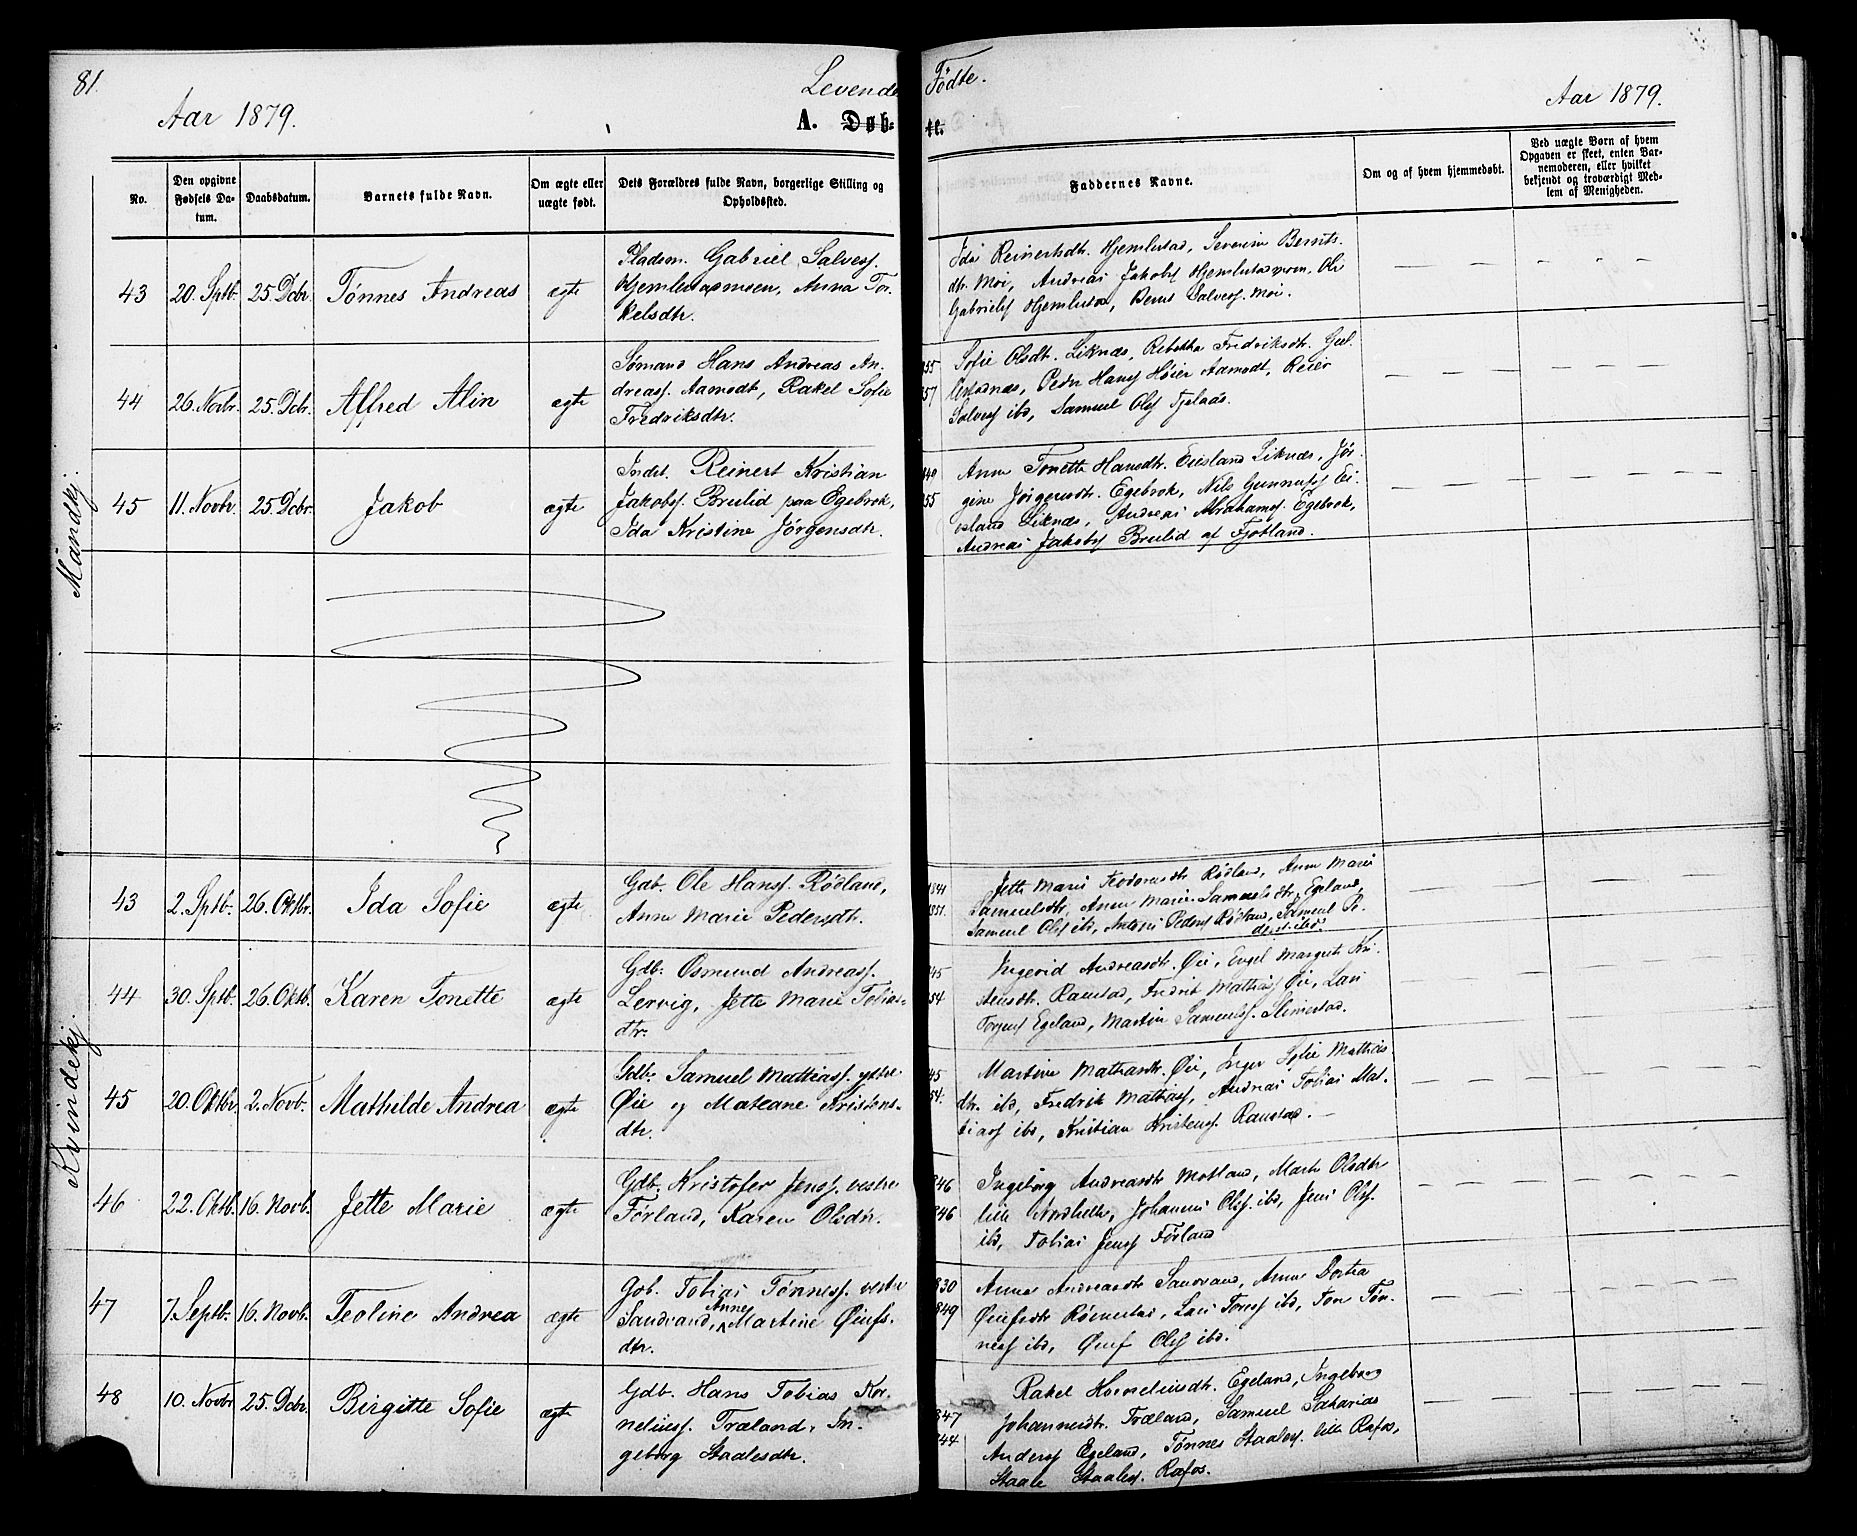 81.
Levende Fødte.
Aar 1879.
A. Døbte.
Aar 1879.
No.
Den opgivne Fødsels Datum.
Daabsdatum.
Barnets fulde Navn.
Om ægte eller uægte født.
Dets Forældres fulde Navn, borgerlige Stilling og Opholdssted.
Faddernes Navne.
Om og af hvem hjemmedøbt.
Ved uægte Børn af hvem Opgaven er skeet, enten Barnemoderen, eller hvilket bekjendt og troværdigt Medlem af Menigheden.
Mandkj.
43 20. Sptb. 25. Dcbr. Tønnes Andreas ægte
Pladsm. Gabriel Salvess.
Hjemlestadmoen, Anna Tor-
kelsdtr.
Ida Reinertsdtr. Hjemlestad, Severine Bernts-
dtr. Moi, Andreas Jakobs Hjemlestadmoen, Ole
Gabriels Hjemlestad, Bernt Salvess. Moi.
44 26. Novbr. 25. Dcbr. Alfred Alin ægte
Sømand Hans Andreas An-
dreass. Aamodt, Rakel Sofie
Fredriksdtr.
855
857
Sofie Olsdtr. Liknæs, Rebekka Fredriksdtr. Gul-
Peder Hanss Aamodt, Reier
Salvess ibd, Samuel Olss
45 11. Novbr. 25. Dcbr. Jakob ægte
Inderst. Reinert Kristian
Jakobs. Brulid paa Egebrok,
Ida Kristine Jørgensdtr.
849
855
Anne Tonette Hansdtr. Eiesland Liknæs, Jør-
gine Jørgensdtr. Egebrok, Nils Gunnufs Ei-
esland Liknæs, Andreas Abrahams. Egebrok,
Andreas Jakobs Brulid af Fjotland.
Kvindekj.
43 2. Sptb. 26. Oktbr. Ida Sofie ægte
Gdb. Ole Hanss. Rødland,
Anne Marie Pedersdtr.
1841
1851.
Jette Marie Teodorsdtr Rødland, Anne Marie
Samuelsdtr, Anne Marie Samuelsdtr, Egeland,
Samuel Olss ibd, Antoni Peders Rødland, Samuel Pe-
derss. ibd.
44 30. Sptb. 26. Oktb. Karen Tonette ægte
Gdb. Osmund Andreass.
Lervig, Jette Marie Tobias-
dtr.
845
854
Ingerid Andreasdtr. Øie, Engel Margrete Kri-
stensdtr. Raustad, Fredrik Mathias Øie, Lars
Torjuss Egeland, Martin Samuelss. Slimestad.
45 20. Oktbr 2. Novb. Mathilde Andrea ægte
Gdb. Samuel Mathiass. ystre
Øie og Mateane Kristens-
dtr.
845
854.
Martine Mathiasdtr. Øie, Inger Sofie Mathias-
dtr. ibd, Fredrik Mathiass, Andreas Tobias Mat-
tiass ibd, Kristian Kristens. Raustad.
46 22. Oktb. 16. Novb. Jette Marie ægte
Gdb. Kristofer Jenss. vestre
Førland, Karen Olsdtr.
846
846
Ingeborg Andreasdtr Motland, Marte Olsdtr
lille Nordhelle, Johannes Olss. ibd, Jens Olss.
ibd, Tobias Jenss Førland
47 7. Septb. 16. Novb. Teoline Andrea ægte
Gdb. Tobias Tønness. vestre
Sandvand, Anne Martine Øiufs-
dtr.
830
849
Anne Andreasdtr Sandvand, Anne Dortea
Øiufsdtr Rømestad, Lars Toress ibd, Tore Tøn-
ness ibd, Øiuf Olss ibd.
48 10. Novbr 25. Dcbr. Birgitte Sofie ægte
Gdb. Hans Tobias Kor-
neliuss. Træland, In-
geborg Staalesdtr.
847
844
Rakel Korneliusdtr. Egeland, Ingeborg
Johannesdtr. Træland, Samuel Sakarias
Anderss Egeland, Tønnes Staaless. lille Rafos,
Staale Staaless. Rafos.